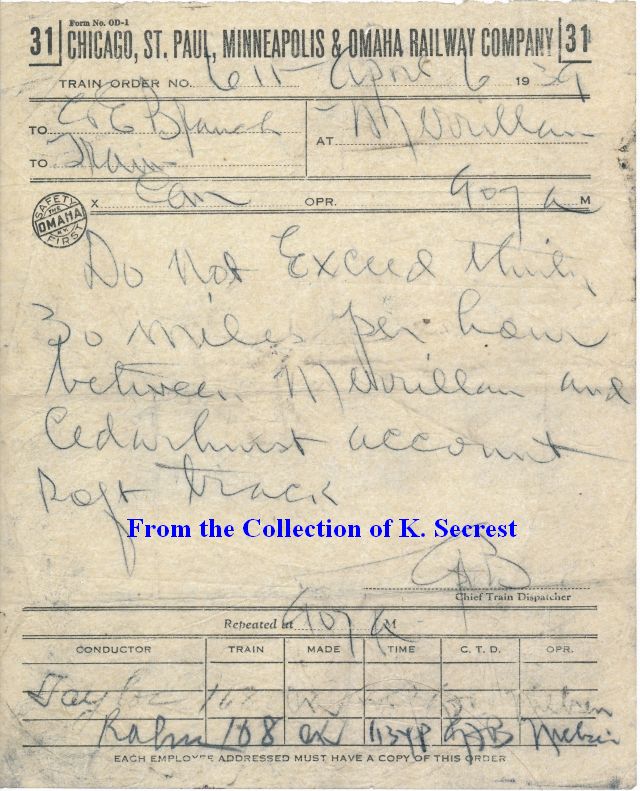 Form No. OD-1
31 CHICAGO, ST. PAUL, MINNEAPOLIS & OMAHA RAILWAY COMPANY 31
TRAIN ORDER NO. 611 April 6 1939
TO E Branch AT Merrillan
TO
X OPR. 907 a M
SAFETY FIRST THE OMAHA RY.
Do Not Exceed thirty
30 miles per hour
between Merrillan and
Cedarhurst account
Soft track
From the Collection of K. Secrest
Chief Train Dispatcher
Repeated at 907 A M
CONDUCTOR TRAIN MADE TIME C. T. D. OPR.
Taylor 167
108
EACH EMPLOYEE ADDRESSED MUST HAVE A COPY OF THIS ORDER